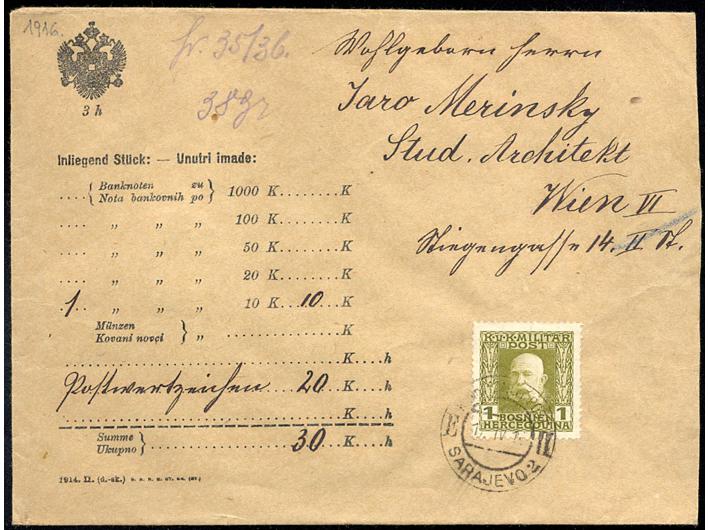 1916.
3 h
fr. 35/36.
38 gr
Wohlgeborn Herrn
Jaro Merinsky
Stud. Architekt
Wien VI
Stiegengasse 14. II St.
Inliegend Stück: — Unutri imade:
.... { Banknoten zu
Nota bankovnih po } 1000 K........K
.... „ „ „ 100 K........K
.... „ „ „ 50 K........K
.... „ „ „ 20 K........K
1.. „ „ „ 10 K..10..K
Münzen
Kovani novci } „
K....h
Postwertzeichen 20 K....h
K....h
Summe
Ukupno } 30 K....h
1914. II. (d.-sk.)
K.u.K. MILITÄR
POST
1 BOSNIEN 1
HERCEGOVINA
SARAJEVO 2